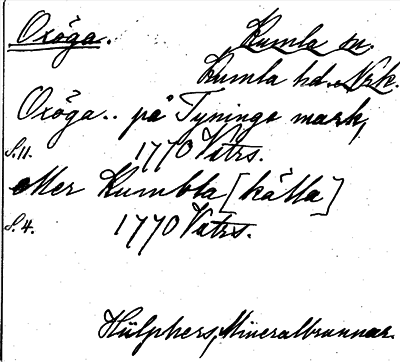 Oxöga. Kumla sn.
Kumla hd. Nrk.
Oxöga.. på Tyninge mark,
S. 11. 1770 Vttrs.
eller Kumbla [källa]
S. 4. 1770 Vttrs.
Hülphers, Mineralbrunnar.